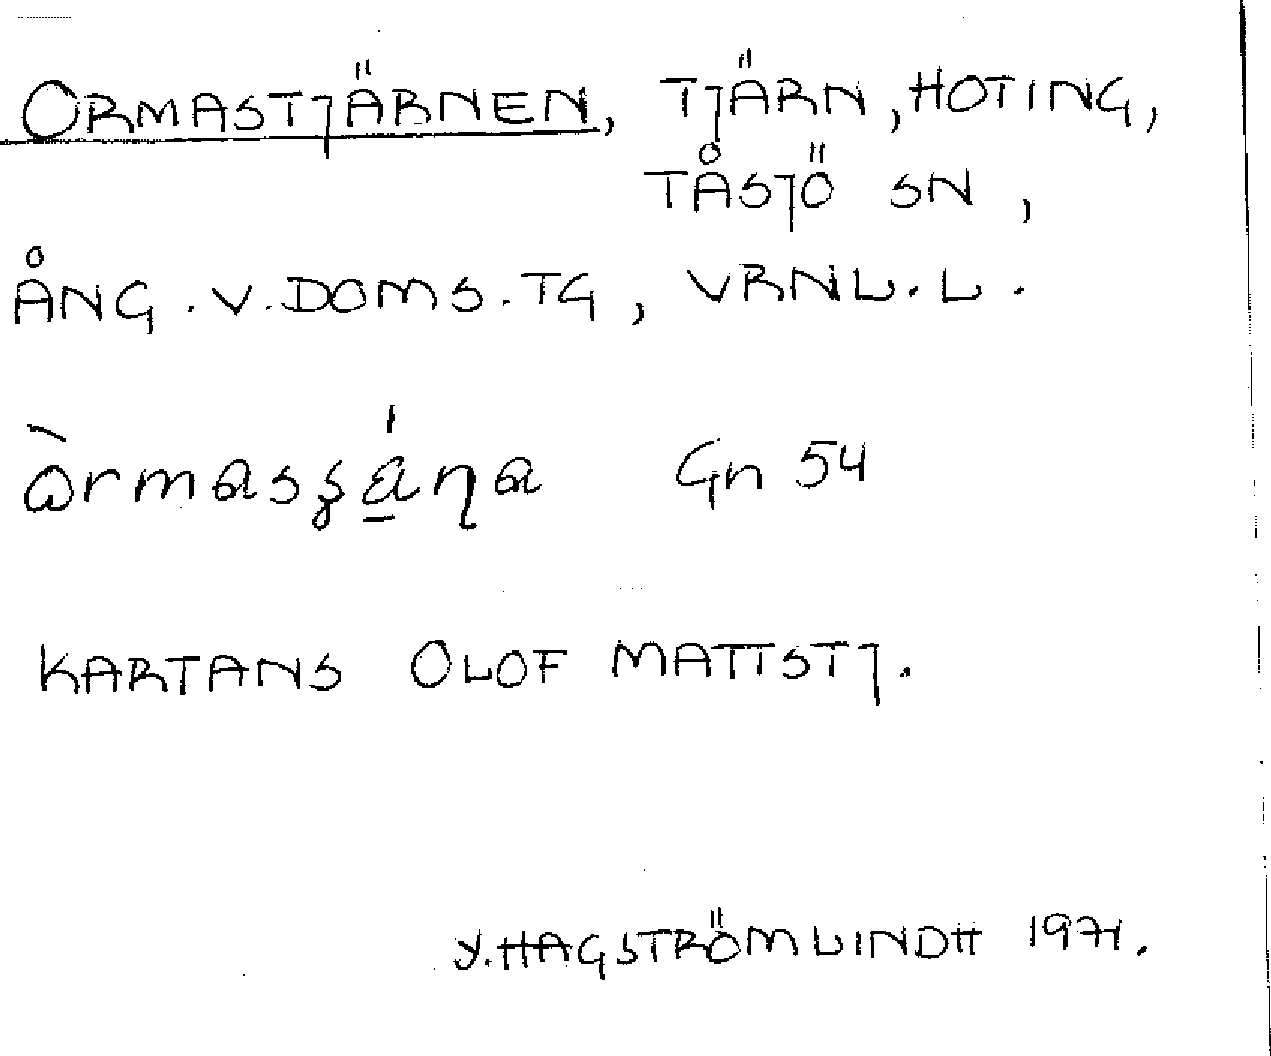 ORMASTJÄRNEN, TJÄRN, HOTING,
TÅSJÖ SN,
ÅNG. V. DOMS. TG, VRNL. L.
Gn 54
KARTANS OLOF MATTSTJ.
Y. HAGSTRÖM LINDH 1971.